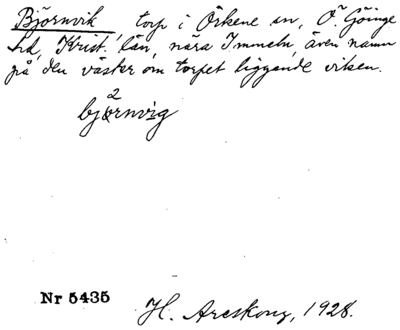 Björnvik, torp i Örkene sn, Ö. Göinge
hd, Krist. län, nära Immeln, även namn
på den väster om torpet liggande viken.
2
björnvig
Nr 5435
H. Areskoug, 1928.